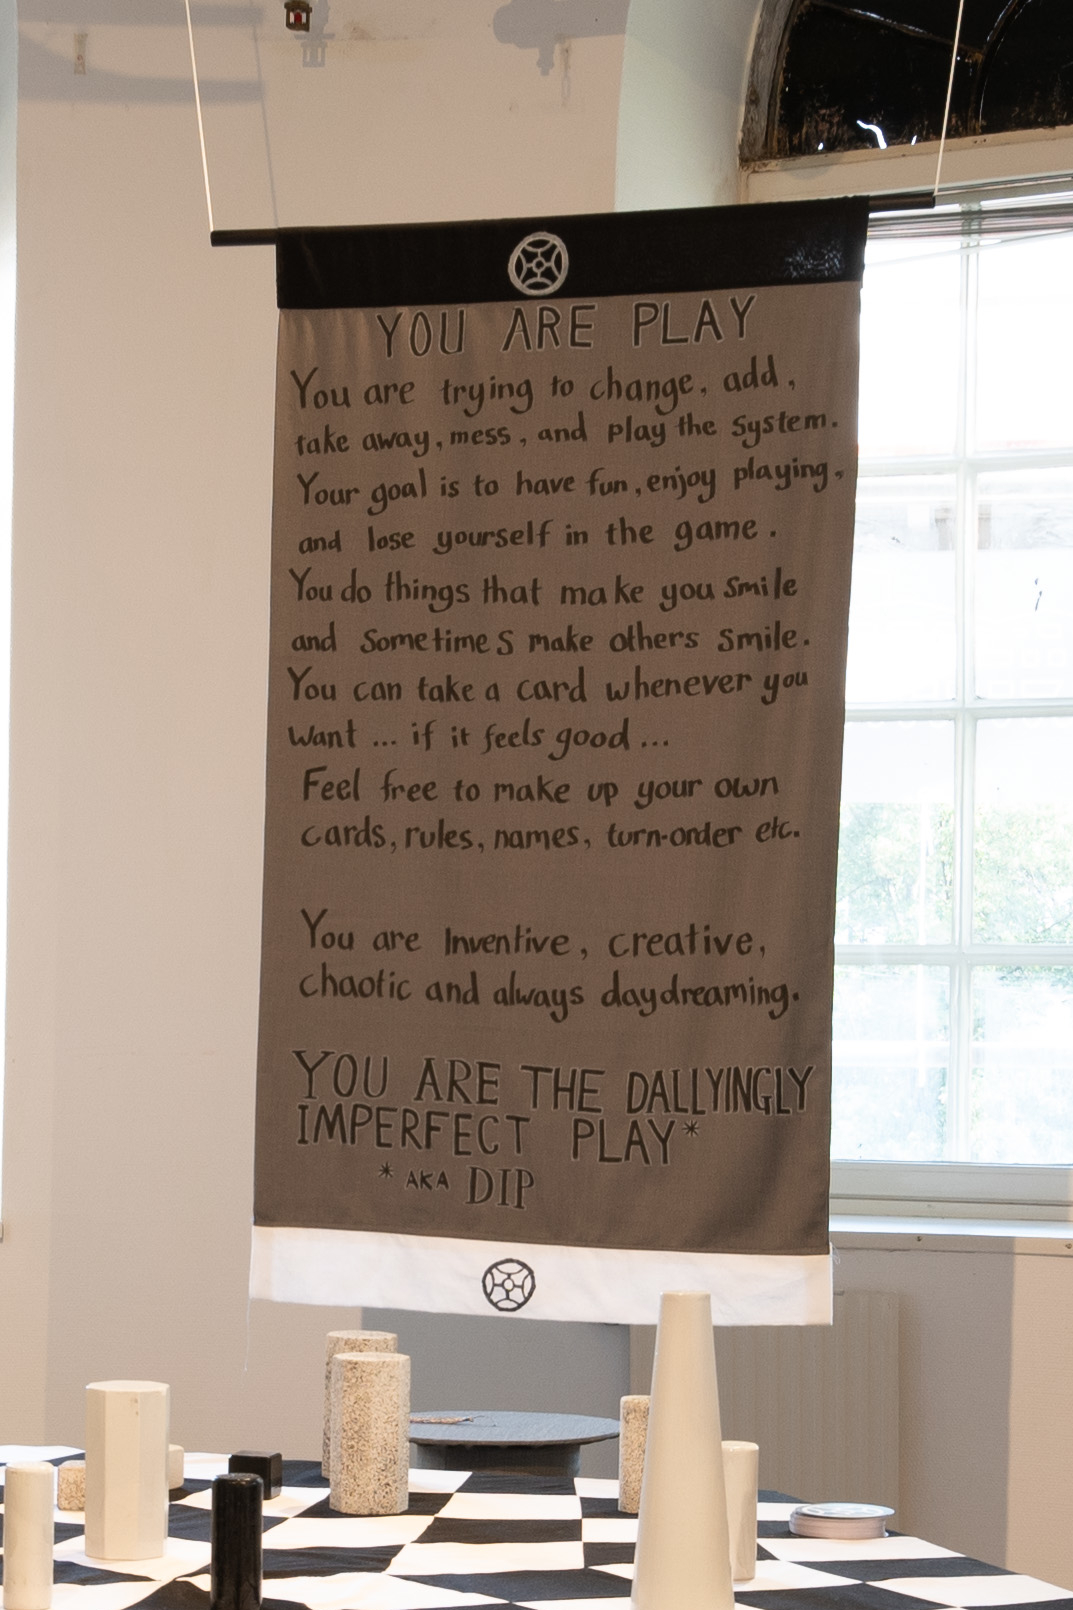 YOU ARE PLAY
You are trying to change, add,
take away, mess, and play the system.
Your goal is to have fun, enjoy playing,
and lose yourself in the game.
You do things that make you smile
and sometimes make others smile.
You can take a card whenever you
want ... if it feels good ...
Feel free to make up your own
cards, rules, names, turn-order etc.
You are Inventive, creative,
chaotic and always daydreaming.
YOU ARE THE DALLYINGLY
IMPERFECT PLAY*
* AKA DIP